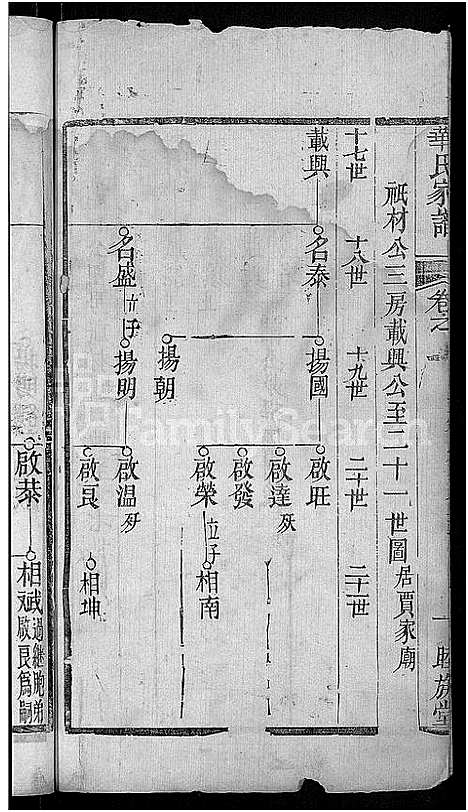 華氏家譜
卷之
睦族堂
祇材公三房載興公至二十一世圖 居賈家廟
十七世 十八世 十九世 二十世 二十一世
載興 名泰 揚國 啟旺
啟達 殀
啟發
啟榮 立子 相南
揚朝
名盛 立子 揚明 啟温 歿
啟良 相坤
啟恭 相斌 過繼胞弟啟良為嗣
FamilySearch